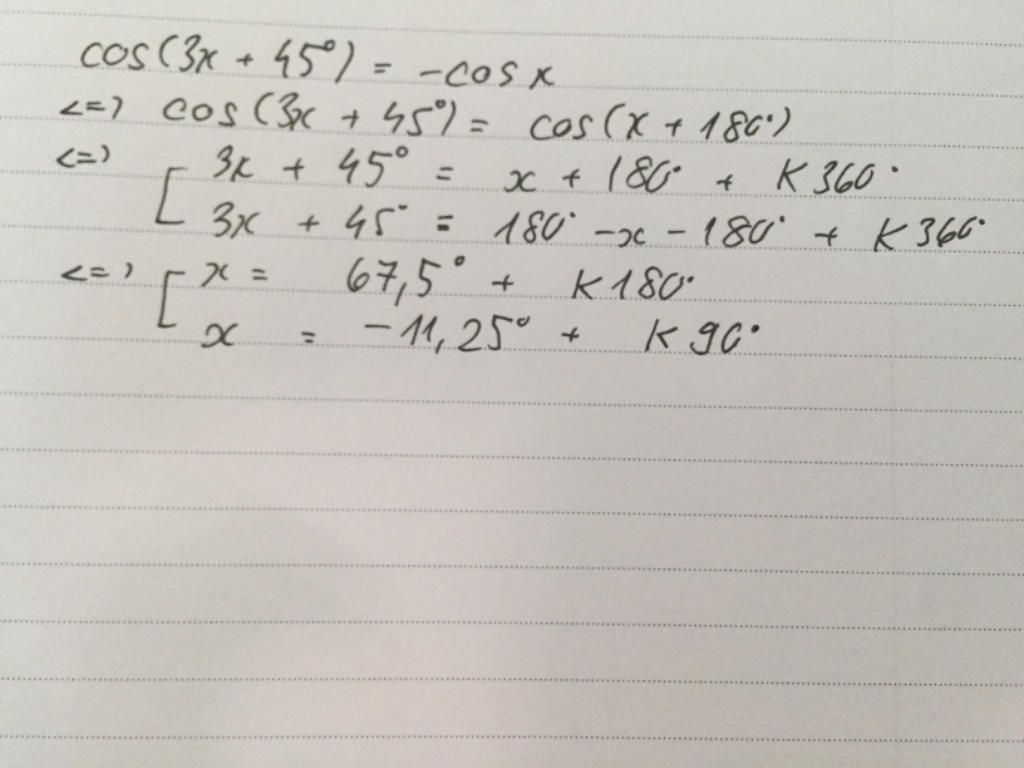 cos(3x + 45°) = -cos x
<=> cos(3x + 45°) = cos(x + 180°)
<=> [ 3x + 45° = x + 180° + K360°
3x + 45° = 180° - x - 180° + K360°
<=> [ x = 67,5° + K180°
x = -11,25° + K90°